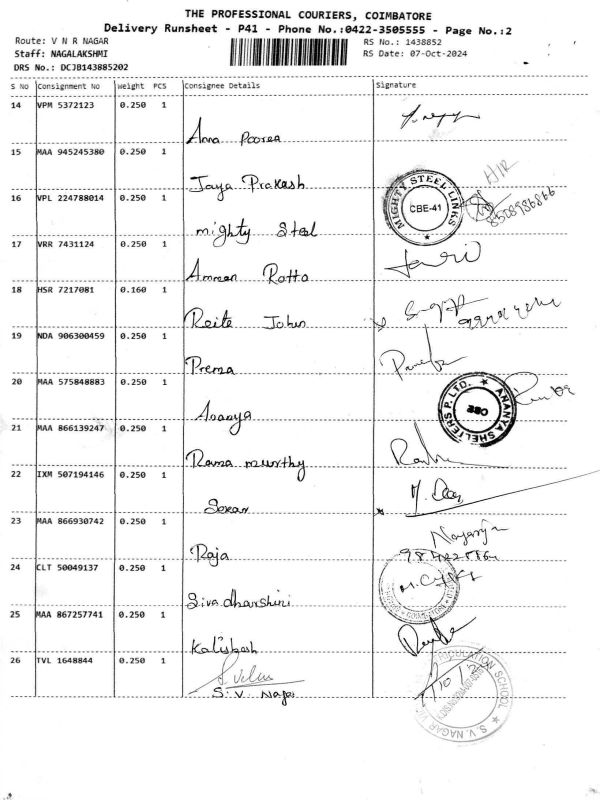 THE PROFESSIONAL COURIERS, COIMBATORE
Delivery Runsheet - P41 - Phone No.:0422-3505555 - Page No.:2
Route: V N R NAGAR RS No.: 1438852
Staff: NAGALAKSHMI RS Date: 07-Oct-2024
DRS No.: DCJB143885202
S No Consignment No Weight PCS Consignee Details Signature
14 VPM 5372123 0.250 1
Anna Poorea
15 MAA 945245380 0.250 1
Jaya Prakash
16 VPL 224788014 0.250 1
MIGHTY STEEL LINKS
CBE-41
H/R
8508986866
mighty Steel
17 VRR 7431124 0.250 1
Ratta
18 HSR 7217081 0.160 1
Reite John
19 NDA 906300459 0.250 1
Prema
20 MAA 575848883 0.250 1
ANANYA SHELTERS P. LTD.
Ananya
21 MAA 866139247 0.250 1
Rama murthy
22 IXM 507194146 0.250 1
23 MAA 866930742 0.250 1
Raja
24 CLT 50049137 0.250 1
Sivadharshini
25 MAA 867257741 0.250 1
Kalibash
26 TVL 1648844 0.250 1
S.V. Nagar
S.V. NAGAR SCHOOL